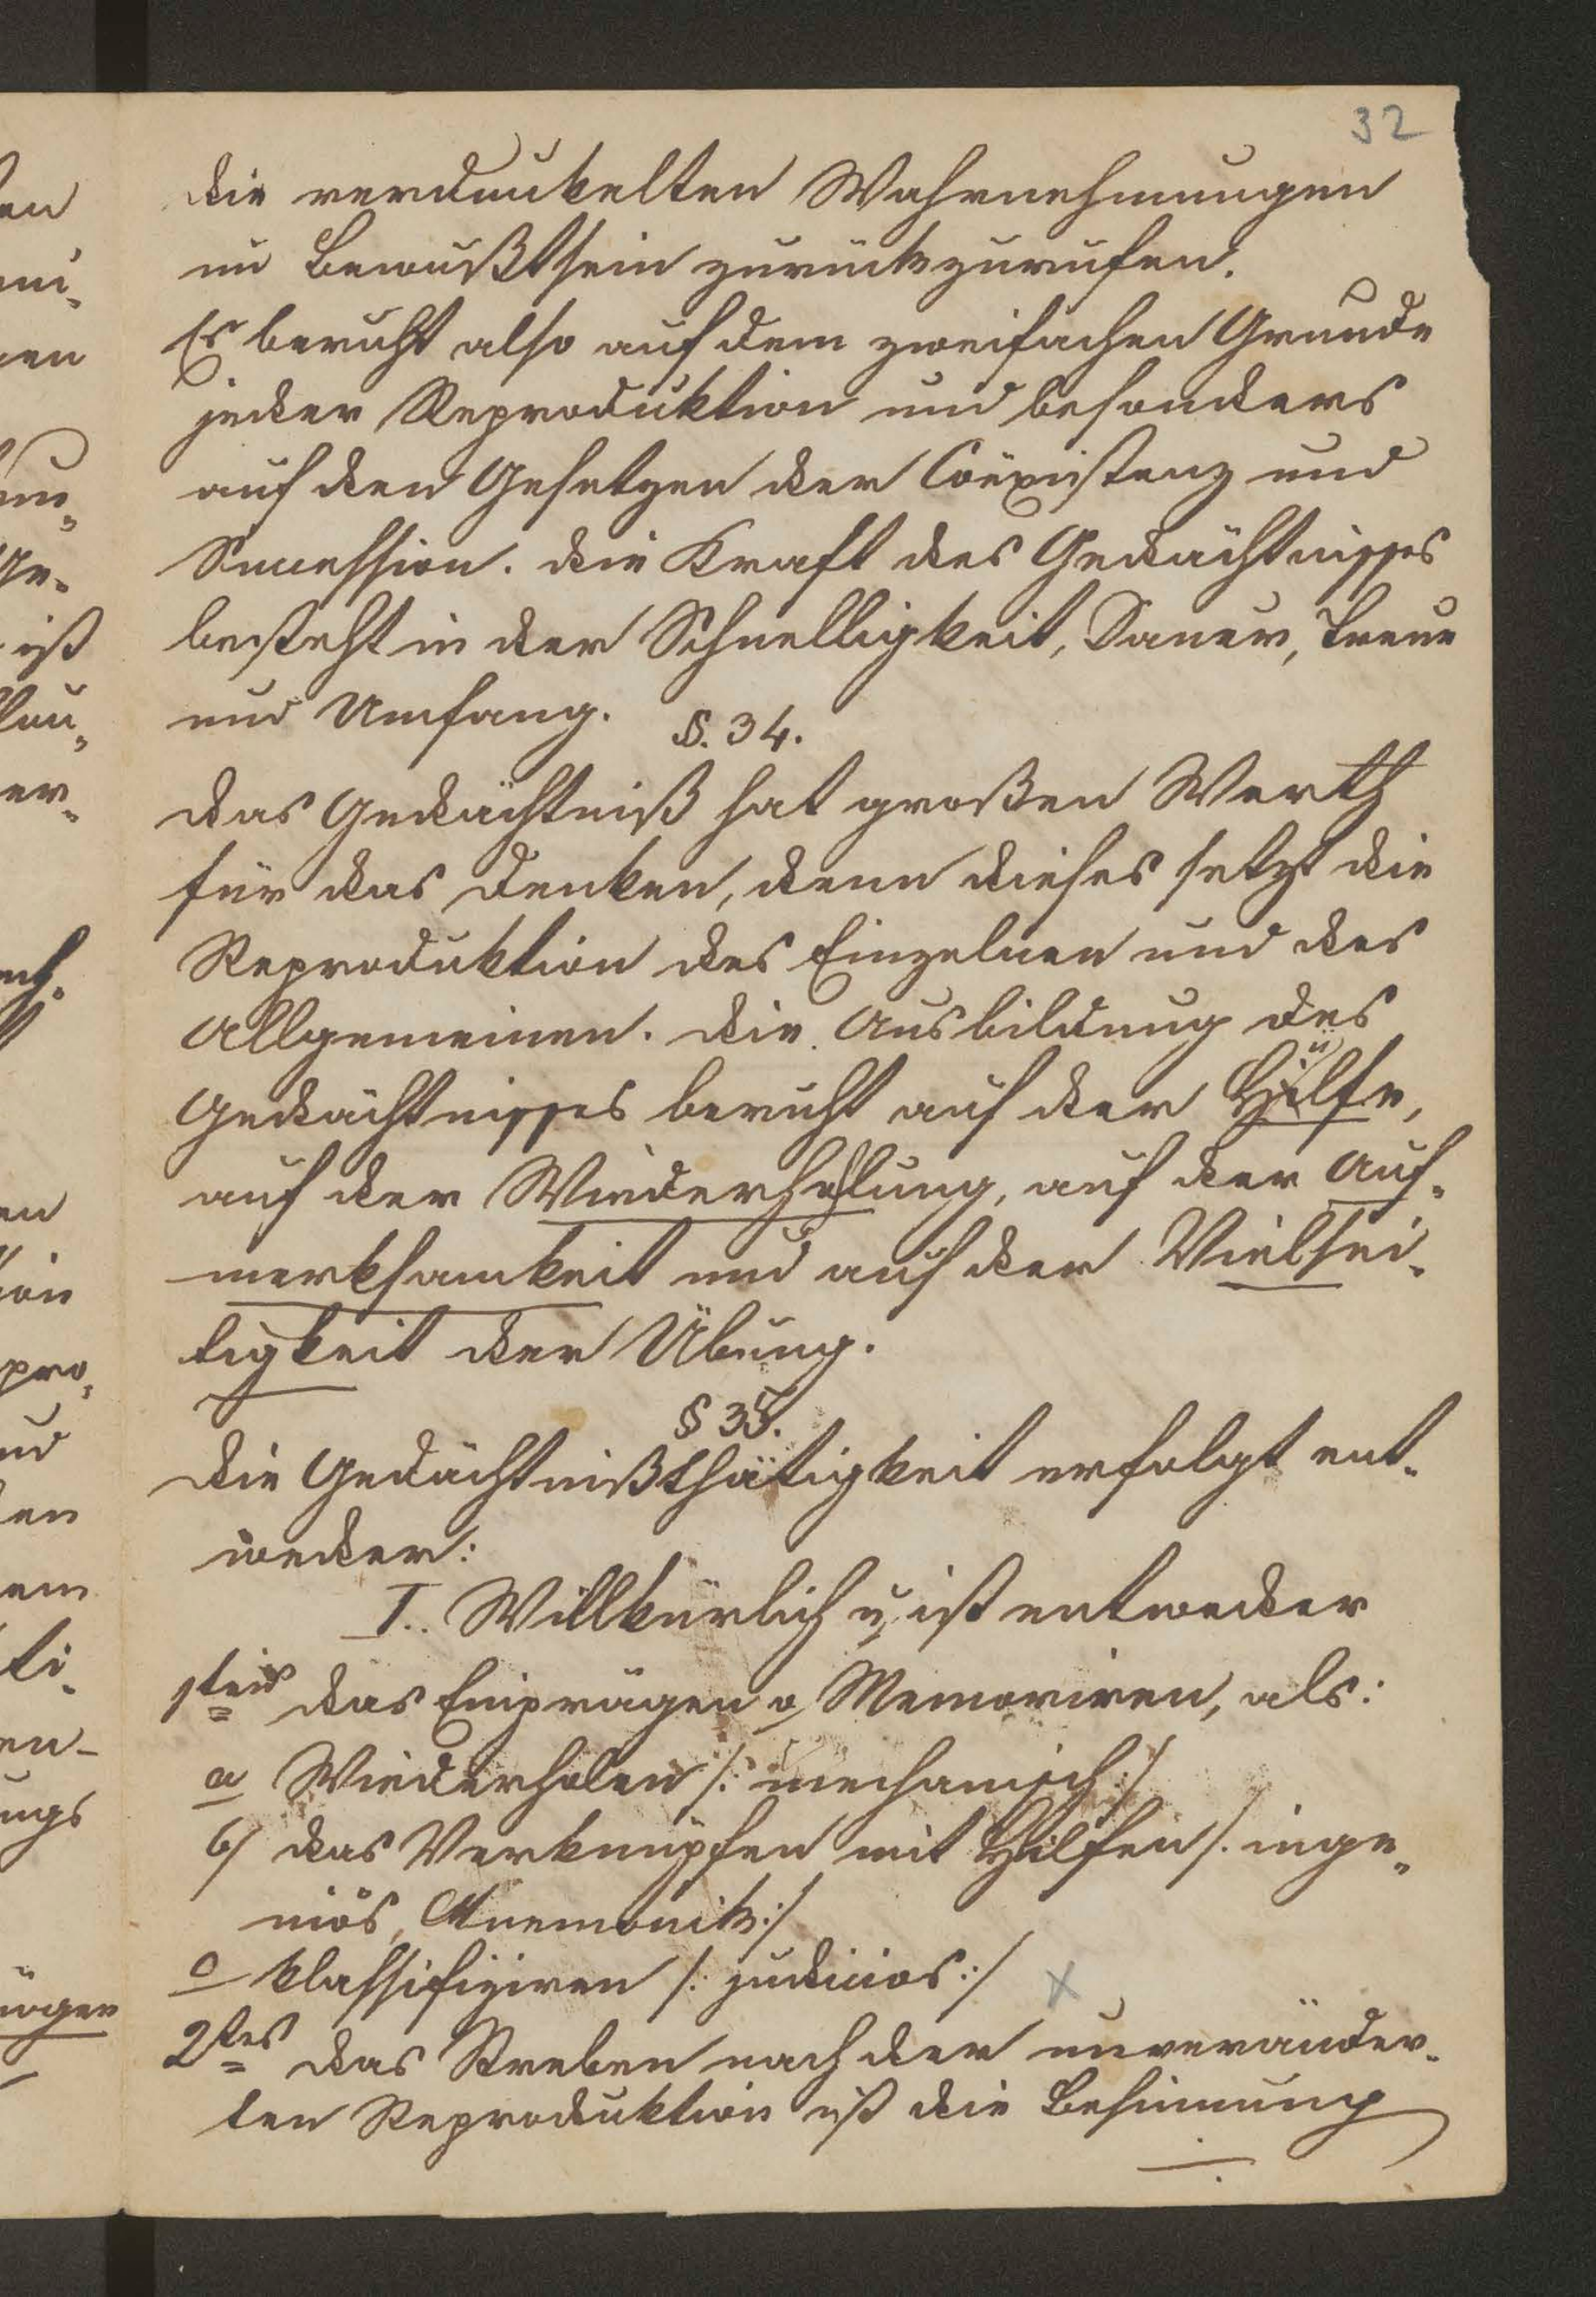 32
die verdunkelten Wahrnehmungen
im Bewußtsein zurückzurufen.
Es beruht also auf dem zweifachen Grunde
jeder Reproduktion und besonders
auf den Gesetzen der Coëxistenz und
Succession. die Kraft des Gedächtnisses
besteht in der Schnelligkeit, Dauer, Treue
und Umfang.
§. 34.
das Gedächtniß hat großen Werth
für das Denken, denn dieses setzt die
Reproduktion des Einzelnen und des
Allgemeinen. die Ausbildung des
Gedächtnisses beruht auf der Hülfe,
auf der Wiederhohlung, auf der Auf-
merksamkeit und auf der Vielsei-
tigkeit der Übung.
§ 35.
die Gedächtnißthätigkeit erfolgt ent-
weder:
I. Willkürlich u. ist entweder
1tens das Einprägen o Memoriren, als:
a Wiederholen /: mechanisch :/
b/ das Verknüpfen mit Hilfen /. inge-
niös, Mnemonik :/
c klassifiziren /: judicios :/ x
2tes das Streben nach der unveränder-
ten Reproduktion ist die Besinnung